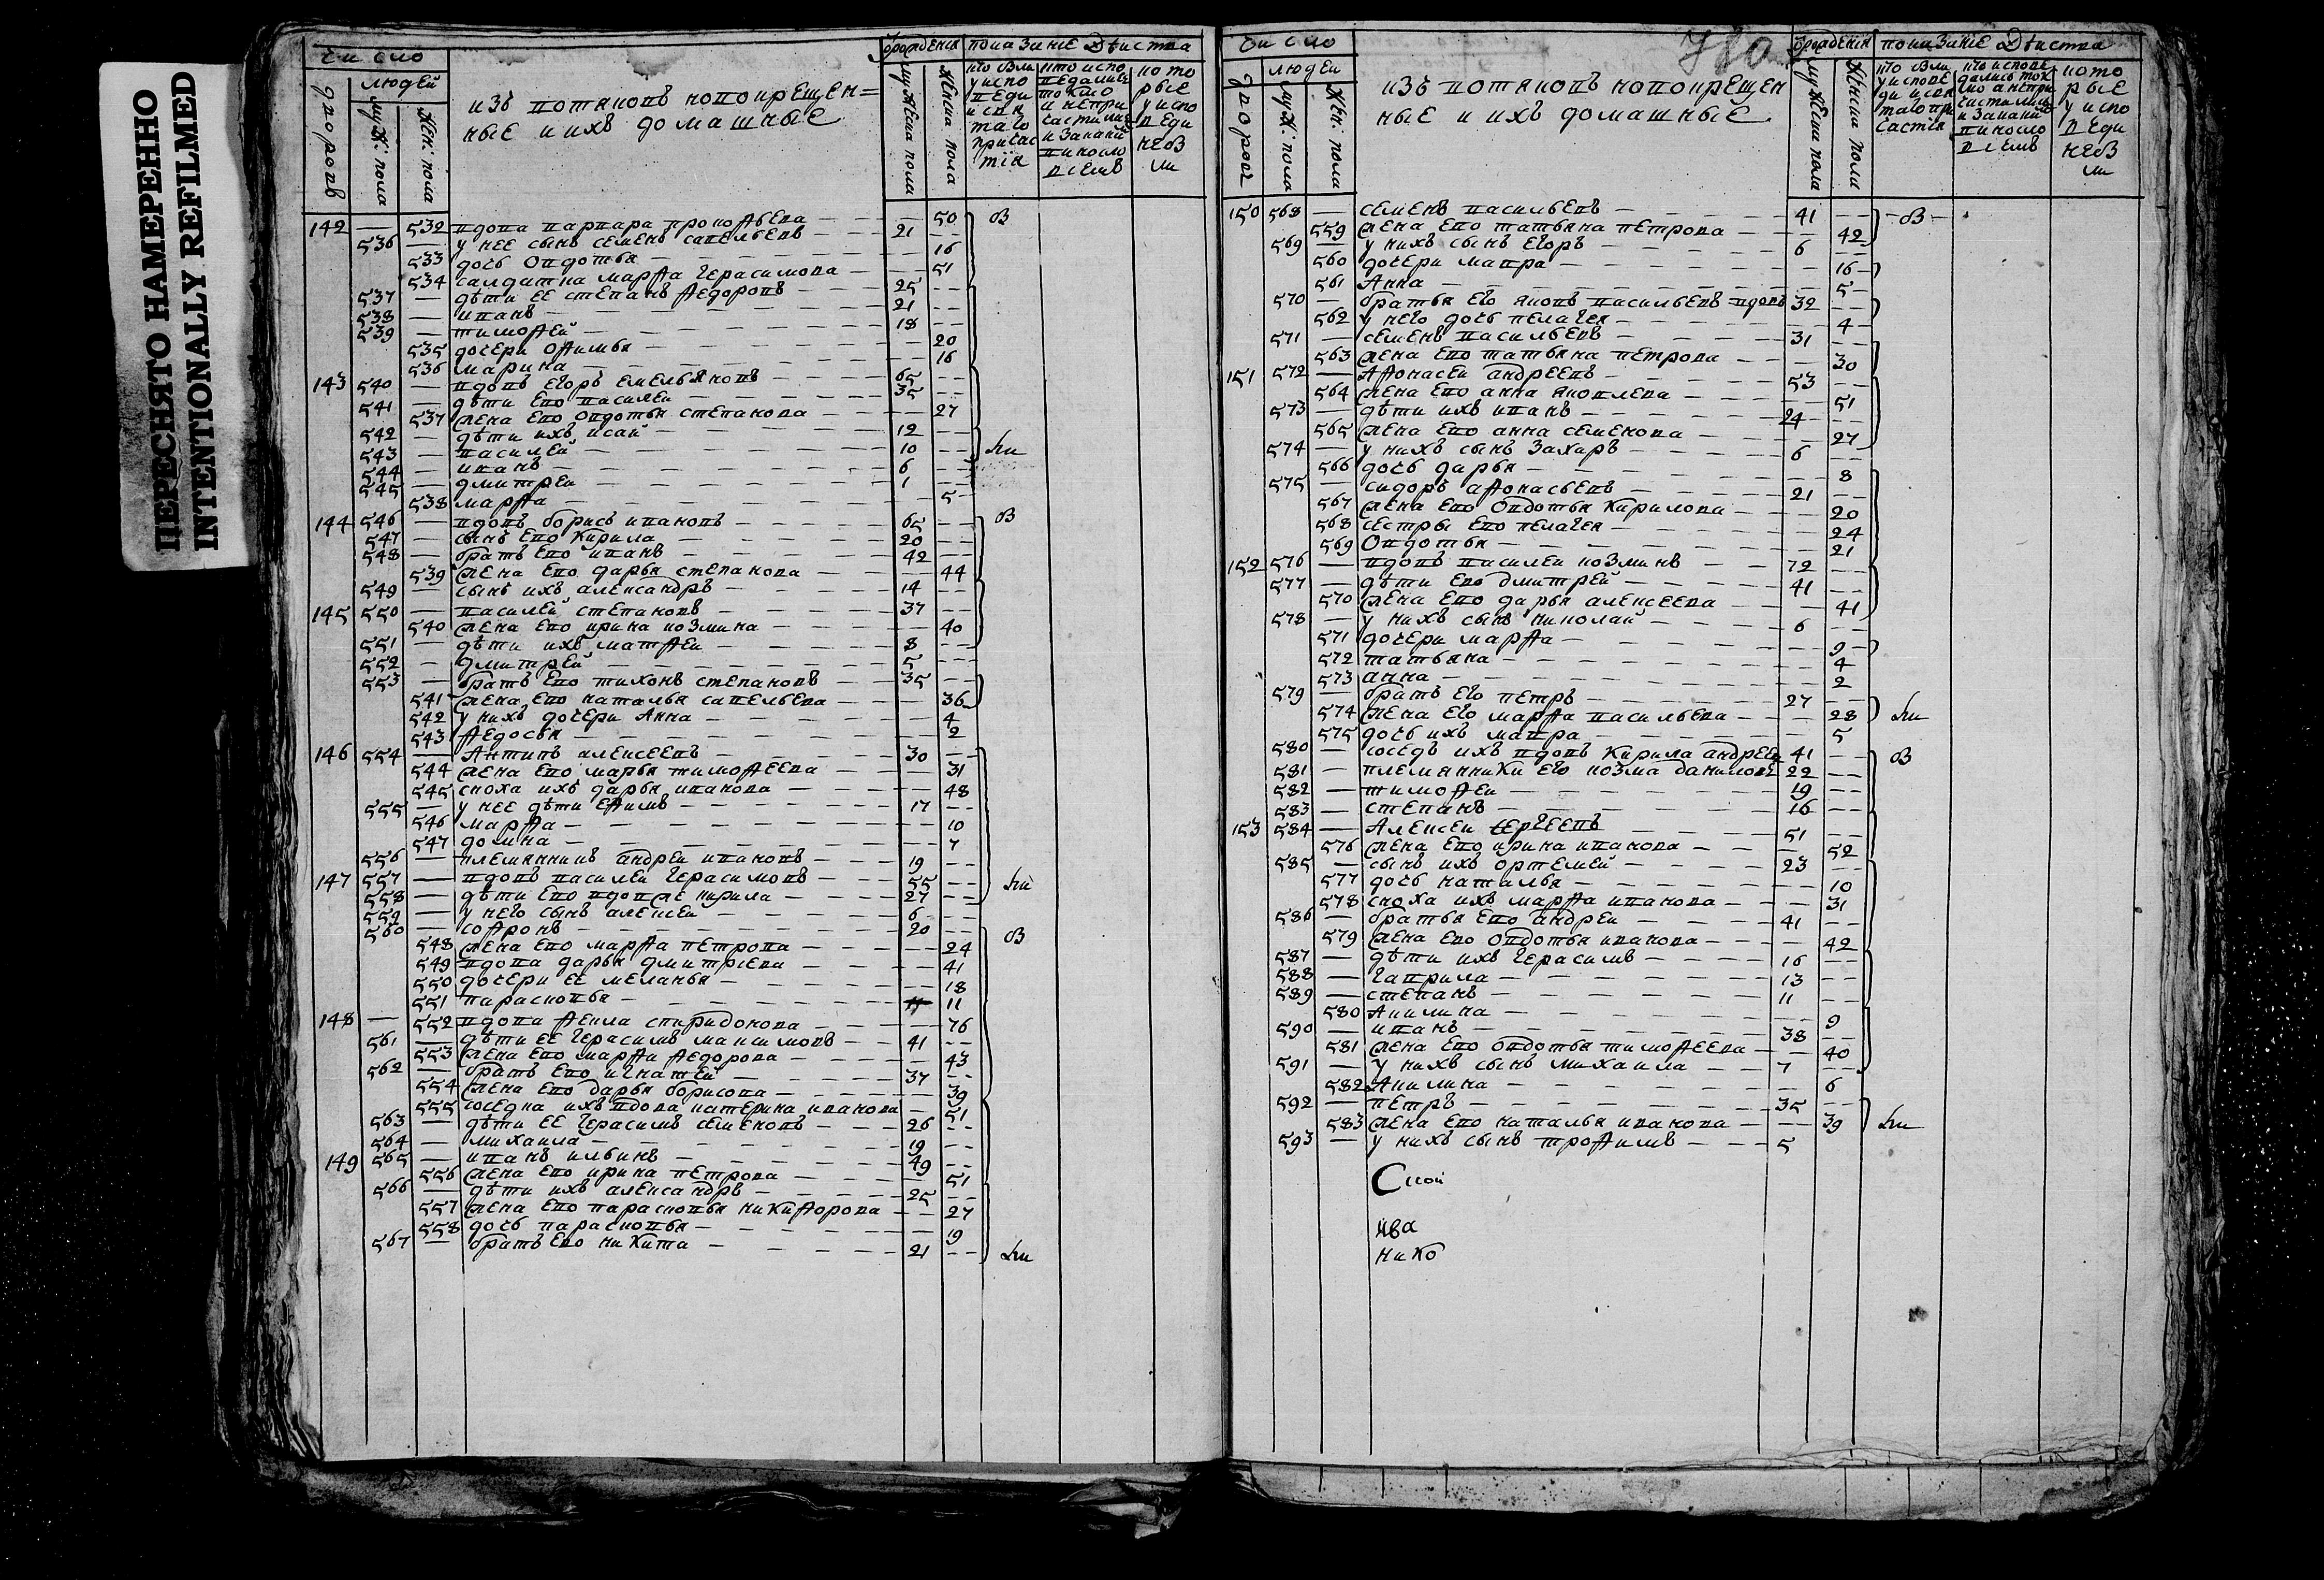 ПЕРЕСНЯТО НАМЕРЕННО
INTENTIONALLY REFILMED
Число
людей
дворовъ
муж: пола
жен: пола
изъ вотяковъ новокрещен=
ные и ихъ домашные
от рожденiя
мужеска пола
женска пола
показанiе действа
142 — 532 вдова варвара прокофьева — 50 В
536 — у нее сынъ семенъ савельевъ 21
533 дочь овдотья 16
534 салдатка марфа герасимова 51
537 — дѣти ее степанъ федоровъ 25
538 — иванъ 21
539 — тимофей 18
535 дочери офимья 20
536 марина 16
143 540 — вдовъ егоръ емельяновъ 65
541 — дѣти ево василей 35
537 жена ево овдотья степанова 27
542 — дѣти ихъ исай 12
543 — василей 10
544 — иванъ 6
545 — дмитреи 1
538 марфа 5
144 546 — вдовъ борисъ ивановъ 65 В
547 — сынъ ево Кирила 20
548 — братъ ево иванъ 42
539 жена ево дарья степанова 44
549 — сынъ ихъ александръ 14
145 550 — василей степановъ 37
540 жена ево ирина козмина 40
551 — дѣти ихъ матфеи 8
552 — дмитрей 5
553 — братъ ево тихонъ степановъ 35
541 жена ево наталья савельева 36
542 у нихъ дочери Анна 4
543 федосья 2
146 554 — Антипъ алексеевъ 30
544 жена ево марья тимофеева 31
545 сноха ихъ дарья иванова 48
555 — у нее дѣти ефимъ 17
546 марфа 10
547 домна 7
556 — племянникъ андреи ивановъ 19
147 557 — вдовъ василеи герасимовъ 55
558 — дѣти ево вдовые кирила 27
559 — у него сынъ алексеи 6
560 — софронъ 20 В
548 жена ево марфа петрова 24
549 вдова дарья дмитрiева 41
550 дочери ее меланья 18
551 парасковья 11
148 — 552 вдова фекла спиридонова 76
561 — дѣти ее герасимъ максимовъ 41
553 жена ево марфа федорова 43
562 — братъ ево игнатей 37
554 жена ево дарья борисова 39
555 соседка ихъ вдова катерина иванова 51
563 — дѣти ее герасимъ семеновъ 26
564 — михаила 19
149 565 — иванъ ильинъ 49
556 жена ево ирина петрова 51
566 — дѣти ихъ александръ 25
557 жена ево парасковья никифорова 27
558 дочь парасковья 19
567 — братъ ево никита 21
Число
людеи
муж. пола
жен. пола
изъ вотяковъ новокрещен
ные и ихъ домашные
от рожденiя
мужеска пола
женска пола
показанiе действа
150 568 — семенъ васильевъ 41 В
559 жена ево татьяна петрова 42
569 — у нихъ сынъ егоръ 6
560 дочери мавра 16
561 Анна 5
570 — братья его яковъ васильевъ вдовъ 32
562 у него дочь пелагея 4
571 — семенъ васильевъ 31
563 жена ево татьяна петрова 30
151 572 — Афонасеи андреевъ 53
564 жена ево анна яковлева 51
573 — дѣти ихъ иванъ 24
565 жена ево анна семенова 27
574 — у нихъ сынъ захаръ 6
566 дочь дарья 8
575 — сидоръ афонасьевъ 21
567 жена ево овдотья Кирилова 20
568 сестры ево пелагея 24
569 Овдотья 21
152 576 — вдовъ василеи козминъ 72
577 — дѣти ево дмитрей 41
570 жена ево дарья алексеева 41
578 — у нихъ сынъ николай 6
571 дочери марфа 9
572 татьяна 4
573 анна 2
579 — братъ его петръ 27
574 жена его марфа васильева 28
575 дочь ихъ мавра 5
580 — соседъ ихъ вдовъ Кирила андреевъ 41 В
581 — племянники его козма даниловъ 22
582 — тимофеи 19
583 — степанъ 16
153 584 — Алексеи сергеевъ 51
576 жена ево ирина иванова 52
585 — сынъ ихъ ортемей 23
577 дочь наталья 10
578 сноха ихъ марфа иванова 31
586 — братья ево андреи 41
579 жена ево овдотья иванова 42
587 — дѣти ихъ герасимъ 16
588 — гаврила 13
589 — степанъ 11
580 Акилина 9
590 — иванъ 38
581 жена ево овдотья тимофеева 40
591 — у нихъ сынъ михаила 7
582 Акилина 6
592 — петръ 35
583 жена ево наталья иванова 39
593 — у нихъ сынъ трофимъ 5
Ива
нико